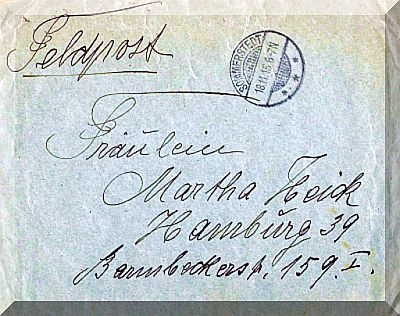 Feldpost
SOMMERSTEDT
18.11.15.6-7N
Fräulein
Martha Heick
Hamburg 39
Barmbeckerst. 159 I.